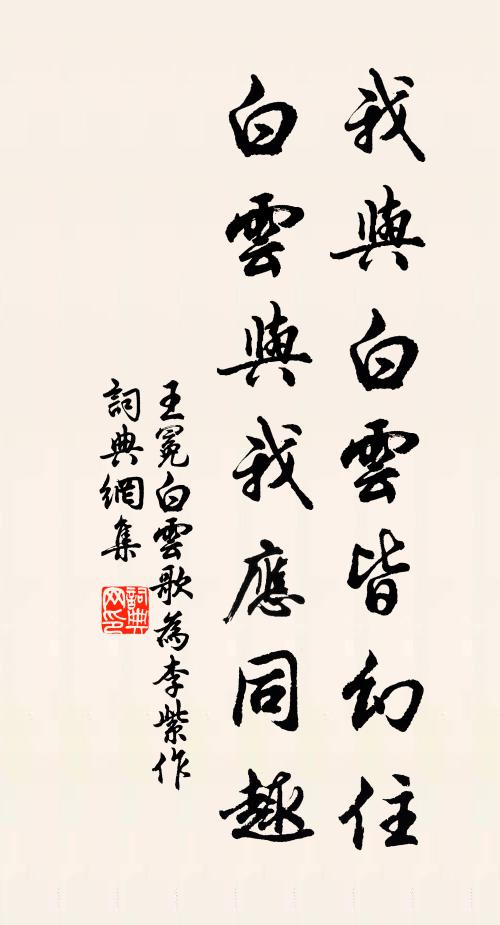 我與白雲皆幻住
白雲與我應同趣
王冕白雲歌為李紫作
詞典網集
詞典
网印